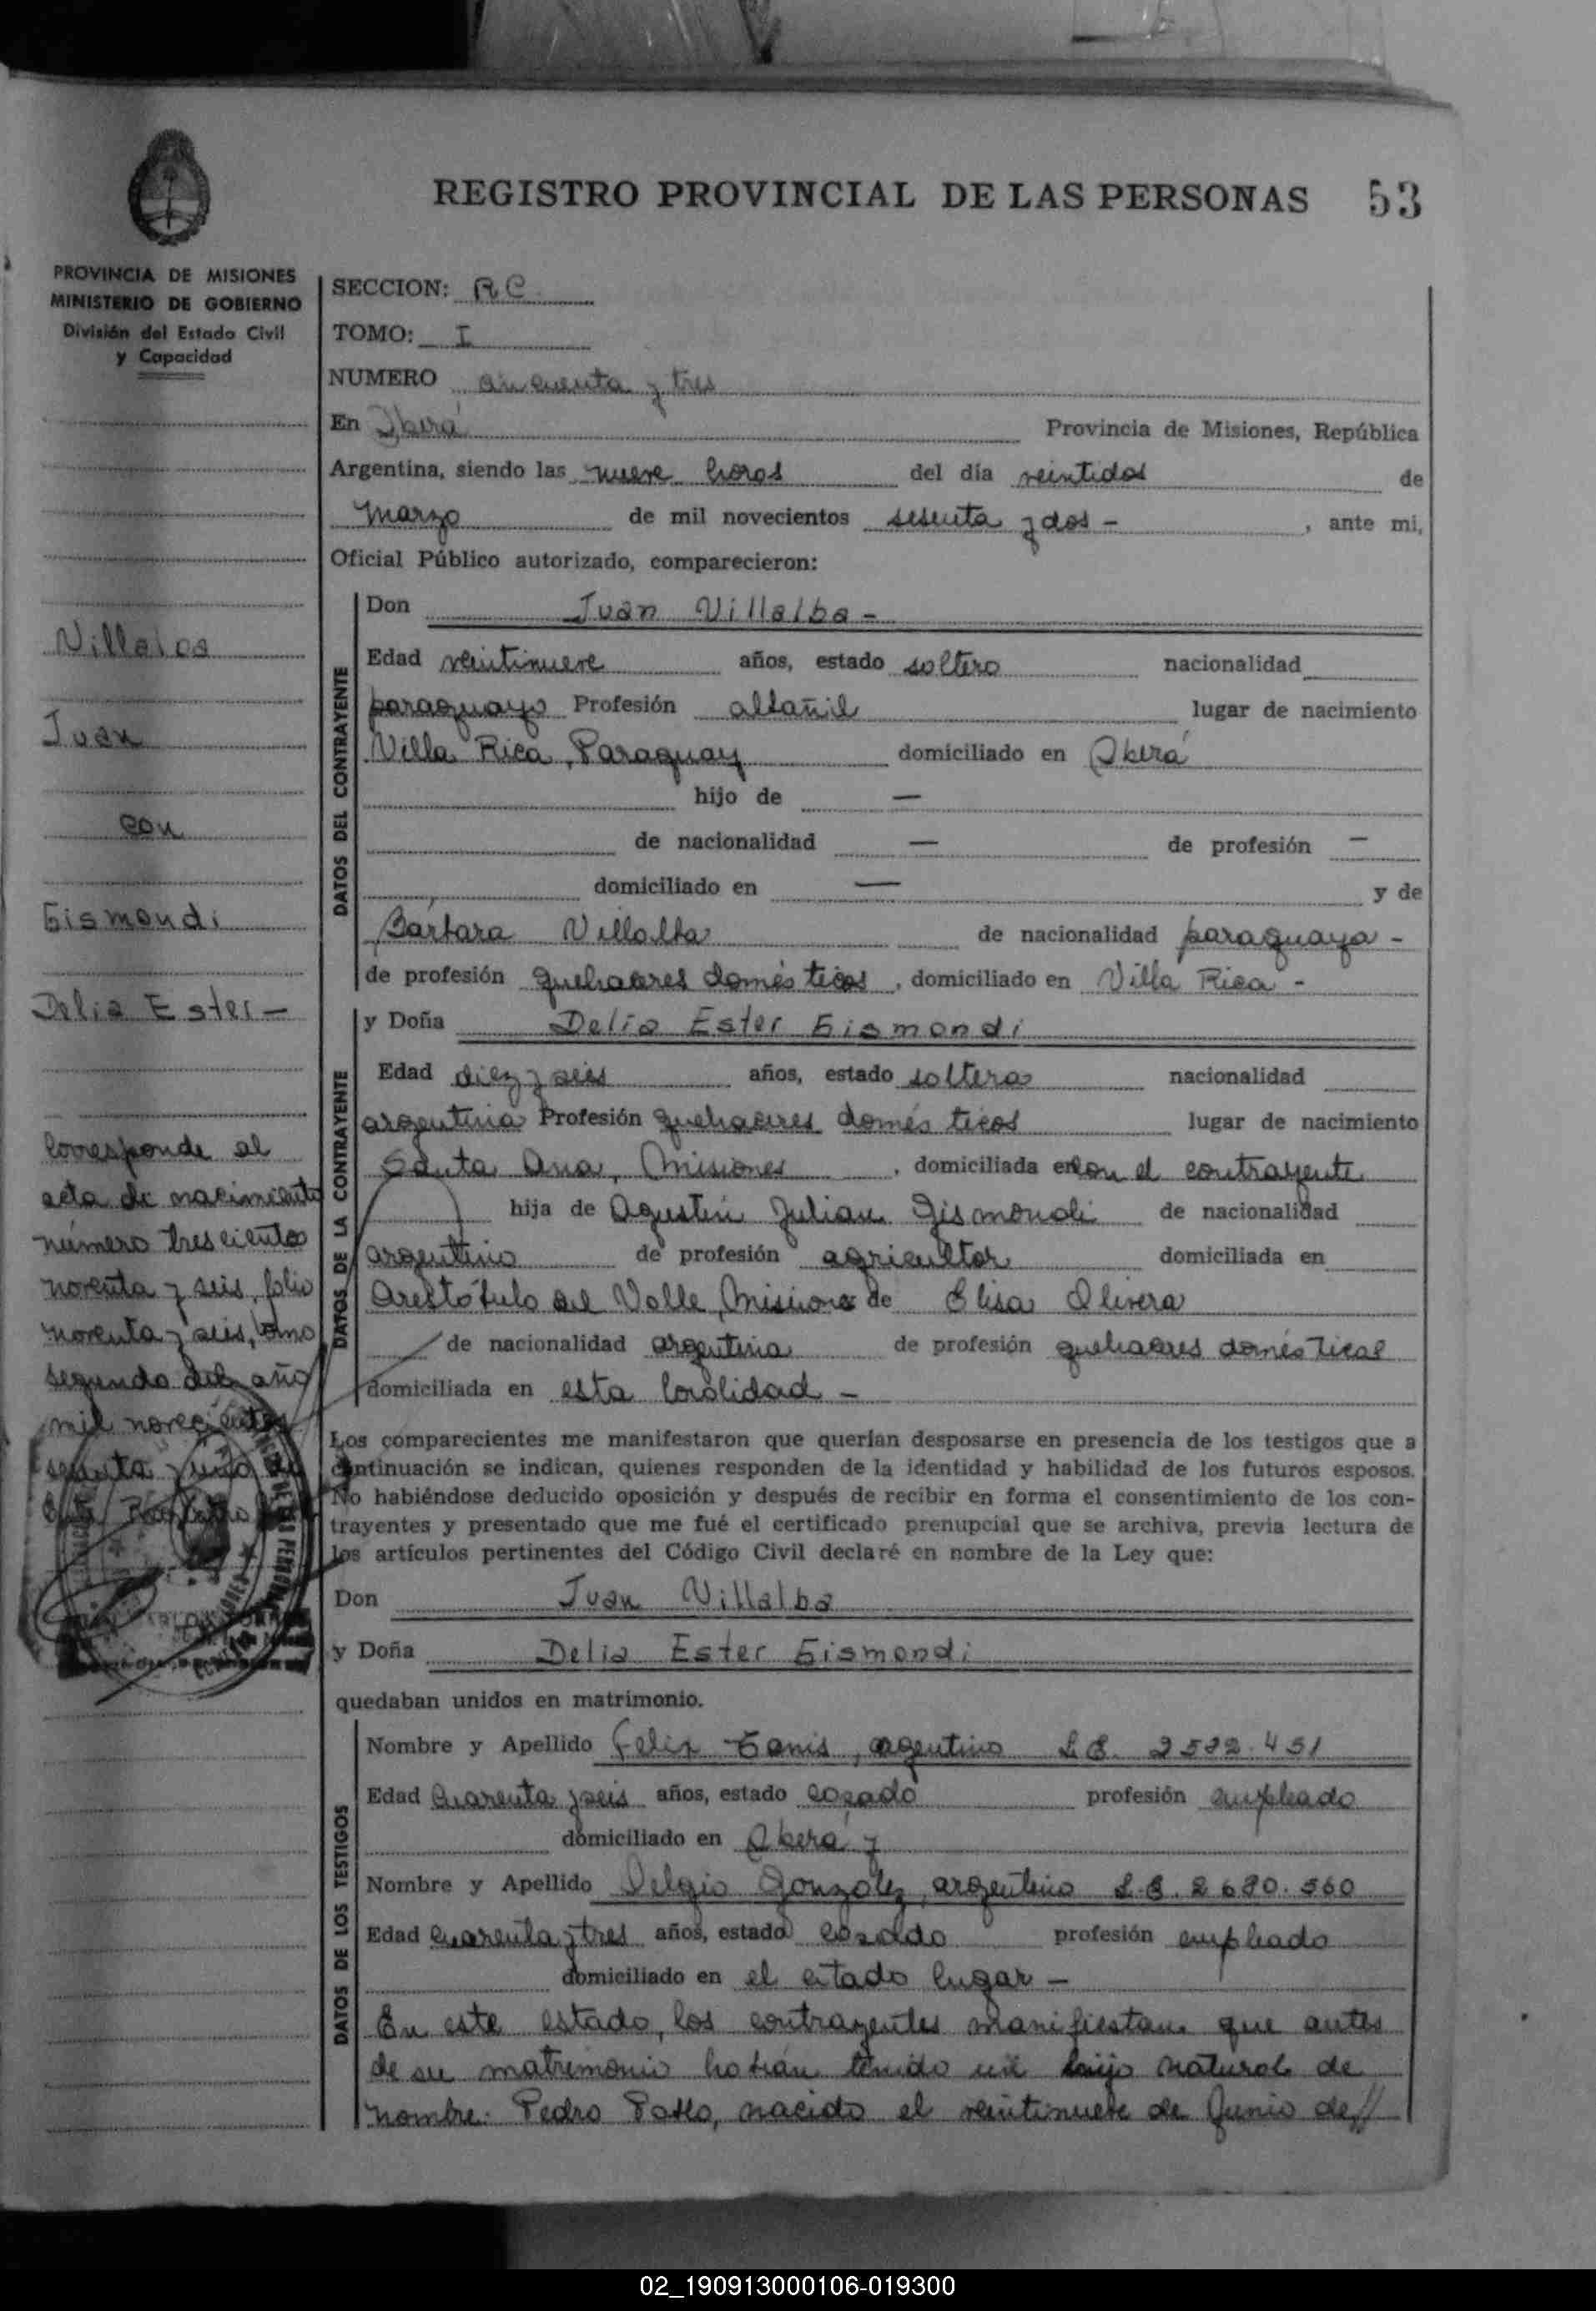 REGISTRO PROVINCIAL DE LAS PERSONAS 53
PROVINCIA DE MISIONES
MINISTERIO DE GOBIERNO
División del Estado Civil
y Capacidad
Villalba
Juan
con
Gismondi
Delia Ester -
Corresponde al
acta de nacimiento
número trescientos
noventa y seis, folio
noventa y seis, tomo
segundo del año
mil novecientos
sesenta y uno
SECCION: RC
TOMO: I
NUMERO cincuenta y tres
En Oberá Provincia de Misiones, República
Argentina, siendo las nueve horas del día veintidos de
marzo de mil novecientos sesenta y dos - , ante mi,
Oficial Público autorizado, comparecieron:
DATOS DEL CONTRAYENTE
Don Juan Villalba -
Edad veintinueve años, estado soltero nacionalidad
paraguayo Profesión albañil lugar de nacimiento
Villa Rica, Paraguay domiciliado en Oberá
hijo de —
de nacionalidad — de profesión —
domiciliado en — y de
Bárbara Villalba de nacionalidad paraguaya -
de profesión quehaceres domésticos , domiciliado en Villa Rica -
DATOS DE LA CONTRAYENTE
y Doña Delia Ester Gismondi
Edad diez y seis años, estado soltera nacionalidad
argentina Profesión quehaceres domésticos lugar de nacimiento
Santa Ana, Misiones , domiciliada en con el contrayente
hija de Agustin Julian Gismondi de nacionalidad
argentino de profesión agricultor domiciliada en
Arestótulo del Valle, Misiones de Elisa Olivera
de nacionalidad argentina de profesión quehaceres domésticos
domiciliada en esta localidad -
Los comparecientes me manifestaron que querían desposarse en presencia de los testigos que a
continuación se indican, quienes responden de la identidad y habilidad de los futuros esposos.
No habiéndose deducido oposición y después de recibir en forma el consentimiento de los con-
trayentes y presentado que me fué el certificado prenupcial que se archiva, previa lectura de
los artículos pertinentes del Código Civil declaré en nombre de la Ley que:
Don Juan Villalba
y Doña Delia Ester Gismondi
quedaban unidos en matrimonio.
DATOS DE LOS TESTIGOS
Nombre y Apellido Felix , argentino 2582.451
Edad cuarenta y seis años, estado casado profesión empleado
domiciliado en Oberá y
Nombre y Apellido Gonzalez, argentino 2680.560
Edad cuarenta y tres años, estado casado profesión empleado
domiciliado en el citado lugar -
En este estado, los contrayentes manifiestan que antes
de su matrimonio habían tenido un hijo natural de
nombre: Pedro Pablo, nacido el veintinueve de Junio de//
02_190913000106-019300